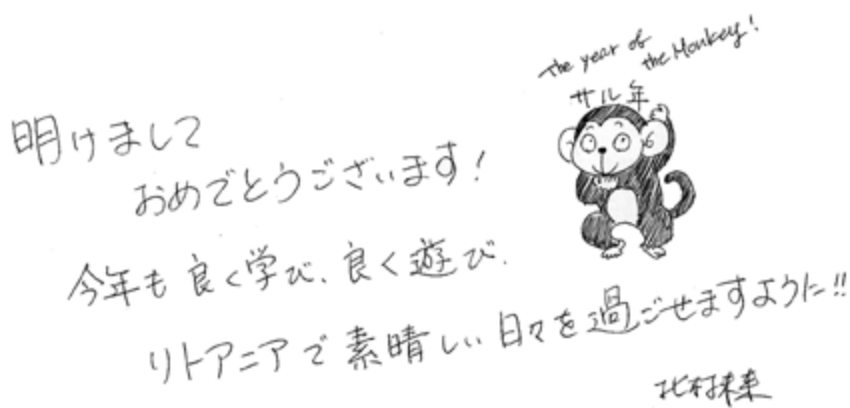 The year of
the Monkey!
サル年
明けまして
おめでとうございます!
今年も良く学び、良く遊び、
リトアニアで素晴しい日々を過ごせますように!!
北村未来